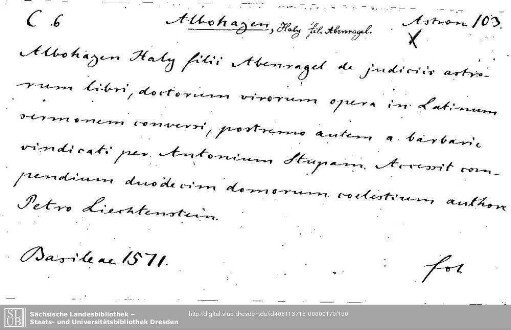 C. 6 Albohazen, Haly fil. Abenragel. Astron. 103.
Albohazen Haly filii Abenragel de judiciis astro-
rum libri, doctorum virorum opera in Latinum
sermonem conversi, postremo autem a barbarie
vindicati per Antonium Stupam. Accessit com-
pendium duodecim domorum coelestium authore
Petro Liechtenstein.
Basileae 1571. fol
Sächsische Landesbibliothek –
Staats- und Universitätsbibliothek Dresden